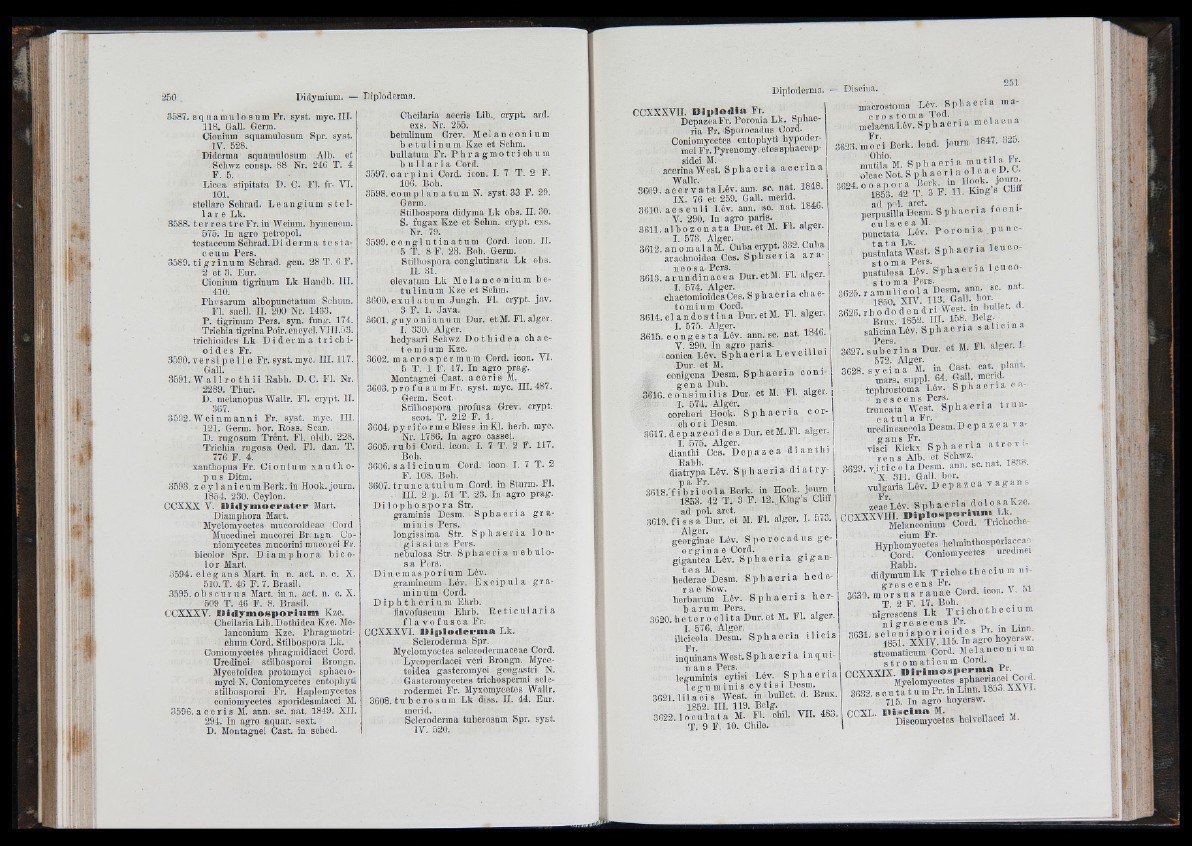 250 Didymium. — Diploderma.
3587. squamulosum Fr. syst. myc. III.
118. Gall. Germ.
Cionium squamulosum Spr. syst.
IV. 528.
Diderma squamulosum Alb. et
Schwz consp. 88. Nr. 246 T. 4
F. 5.
Licea stipitata D. C. Fl. fr. VI.
101.
stellare Schrad. Leangium stel-
lare Lk.
3588. terrestre Fr. in Weinm. hymenem.
575. In agro petropol.
testaceum Schrad. Diderma testa-
ceum Pers.
3589. tigrinum Schrad. gen. 28 T. 6 F.
2 et 3. Eur.
Cionium tigrinum Lk Handb. III.
410.
Physarum albopunctatum Schum.
Fl. saell. II. 200 Nr. 1433.
P. tigrinum Pers. syn. fung. 174.
Trichia tigrina Poir. encycl. VIII. 53.
trichioides Lk Diderma trichi-
oides Fr.
3590. versipelle Fr. syst. myc. III. 117.
Gall.
3591. Wallrothii Rabh. D. C. Fl. Nr.
2289. Thur.
D. melanopus Wallr. Fl. crypt. II.
367.
3592. Weinmanni Fr. syst. myc. III.
121. Germ. bor. Ross. Scan.
D. rugosum Trent. Fl. oldb. 228.
Trichia rugosa Oed. Fl. dan. T.
776 F. 4.
xanthopus Fr. Cionium xantho-
pus Ditm.
3593. zeylanicum Berk. in Hook. journ.
1854. 230. Ceylon.
CCXXXIV. Didymocrater Mart.
Diamphora Mart.
Myelomycetes mucoroideae Cord
Mucedinei mucorei Brongn. Co-
niomycetes mucorini mucorei Fr.
bicolor Spr. Diamphora bico-
lor Mart.
3594. elegans Mart. in n. act. n. c. X.
510. T. 46 F. 7. Brasil.
3595. obscurus Mart. in n. act. n. c. X.
509 T. 46 F. 8. Brasil.
CCXXXV. Didymosporium Kze.
Cheilaria Lib. Dothidea Kze. Me-
lanconium Kze. Phragmotri-
chum Cord. Stilbospora Lk.
Coniomycetes phragmidiacei Cord.
Uredinei stilbosporei Brongn.
Mycetoidea protomyci sphaero-
myci N. Coniomycetes entophyti
stilbosporei Fr. Haplomycetes
coniomycetes sporidesmiacei M.
3596. aceris M. ann. sc. nat. 1849. XII.
294. In agro aquar. sext.
D. Montagnei Cast. in sched.
Cheilaria aceris Lib. crypt. ard.
exs. Nr. 255.
betulinum Grev. Melanconium
betulinum Kze et Schm.
bullatum Fr. Phragmotrichum
bullaria Cord.
3597. carpini Cord. icon. I. 7 T. 2 F.
106. Boh.
3598. complanatum N. syst. 33 F. 29.
Germ.
Stilbospora didyma Lk obs. II. 30.
S. fugax Kze et Schm. crypt. exs.
Nr. 79.
3599. conglutinatum Cord. icon. II.
5 T. 8 F. 23. Boh. Germ.
Stilbospora conglutinata Lk obs.
II. 31.
elevatum Lk Melanconium be-
tulinum Kze et Schm.
3600. exolatum Jungh. Fl. crypt. jav.
3 F. 1. Java.
3601. guyonianum Dur. et M. Fl. alger.
I. 330. Alger.
hedysari Schwz Dothidea chae-
tomium Kze.
3602. macrospermum Cord. icon. VI.
5 T. 1 F. 17. In agro prag.
Montagnei Cast. aceris M.
3603. profusum Fr. syst. myc. III. 487.
Germ. Scot.
Stilbospora profusa Grev. crypt.
scot. T. 212 F. 1.
3604. pyriforme Riess in Kl. herb. myc.
Nr. 1786. In agro cassel.
3605. rubi Cord. icon. I. 7 T. 2 F. 117.
Boh.
3606. salicinum Cord. icon. I. 7 T. 2
F. 108. Boh.
3607. truncatulum Cord. in Sturm. Fl.
III. 2 p. 51 T. 23. In agro prag.
Dilophospora Str.
graminis Desm. Sphaeria gra-
minis Pers.
longissima Str. Sphaeria lon-
gissima Pers.
nebulosa Str. Sphaeria nebulo-
sa Pers.
Dinemasporium Lév.
gramineum Lév. Excipula gra-
minum Cord.
Diphtherium Ehrb.
flavofuscum Ehrb. Reticularia
flavofusca Fr.
CCXXXVI. Diploderma Lk.
Scleroderma Spr.
Myelomycetes sclerodermaceae Cord.
Lycoperdacei veri Brongn. Myce-
toidea gasteromyci geogastri N.
Gasteromycetes trichospermi scle-
rodermei Fr. Myxomycetes Wallr.
3608. tuberosum Lk diss. II. 44. Eur.
merid.
Scleroderma tuberosum Spr. syst.
IV. 520.
Diploderma. — Discina. 251
CCXXXVII. Diplodia Fr.
Depazea Fr. Poronia Lk. Sphae-
ria Fr. Sporocadus Cord.
Coniomycetes entophyti hypoder-
mei Fr. Pyrenomycetes sphaerop-
sidei M.
acerina West. Sphaeria acerina
Wallr.
3609. acervata Lév. ann. sc. nat. 1848.
IX. 76 et 259. Gall. merid.
3610. aesculi Lév. ann. sc. nat. 1846.
V. 290. In agro paris.
3611. albozonata Dur. et M. Fl. alger.
I. 573. Alger.
3612. anomala M. Cuba crypt. 332. Cuba
arachnoidea Ces. Sphaeria ara-
neosa Pers.
3613. arundinacea Dur. et M. Fl. alger.
I. 574. Alger.
chaetomioides Ces. Sphaeria chae-
tomium Cord.
3614. clandestina Dur. et M. Fl. alger.
I. 575. Alger.
3615. congesta Lév. ann. sc. nat. 1846.
V. 290. In agro paris.
conica Lév. Sphaeria Leveillei
Dur. et M.
conigena Desm. Sphaeria coni-
gena Dub.
3616. consimilis Dur. et M. Fl. alger.
I. 574. Alger.
corchori Hook. Sphaeria cor-
chori Desm.
3617. depazeoides Dur. et M. Fl. alger.
I. 575. Alger.
dianthi Ces. Depazea dianthi
Rabh.
diatrypa Lév. Sphaeria diatry-
pa Fr.
3618. fibricola Berk. in Hook. journ
1853. 42 T. 3 F. 12. King's Cliff
ad pol. arct.
3619. fissa Dur. et M. Fl. alger. I. 573.
Alger.
georginae Lév. Sporocadus ge-
orginae Cord.
gigantea Lév. Sphaeria gigan-
tea M.
hederae Desm. Sphaeria hede-
rae Sow.
herbarum Lév. Sphaeria her-
barum Pers.
3620. heteroclita Dur. et M. Fl. alger.
I. 576. Alger.
ilicicola Desm. Sphaeria ilicis
Fr.
inquinans West. Sphaeria inqui-
nans Pers.
leguminis cytisi Lév. Sphaeria
leguminis cytisi Desm.
3621. lilacis West. in bullet. d. Brux.
1852. III. 119. Belg.
3622. loculata M. Fl. chil. VII. 483.
T. 9 F. 10. Chile.
macrostoma Lév. Sphaeria ma-
crostoma Tod.
melaena Lév. Sphaeria melaena
Fr.
3623. mori Berk. lond. journ 1847. 325.
Ohio.
mutila M. Sphaeria mutila Fr.
oleae Not. Sphaeria oleae D. C.
3624. oospora Berk. in Hook. journ.
1853. 42 T. 3 F. 11. King's Cliff
ad pol. arct.
perpusilla Desm. Sphaeria foeni-
culacea M.
punctata Lév. Poronia punc-
tata Lk.
pustulata West. Sphaeria leuco-
stoma Pers.
pustulosa Lév. Sphaeria leuco-
stoma Pers.
3625. ramulicola Desm. ann. sc. nat.
1850. XIV. 113. Gall. bor.
3626. rhododendri West. in bullet. d.
Brux. 1852. III. 158. Belg.
salicina Lév. Sphaeria salicina
Pers.
3627. suberina Dur. et M. Fl. alger. I.
572. Alger.
3628. sycina M. in Cast. cat. plant.
mars. suppl. 64. Gall. merid.
tephrostoma Lév. Sphaeria ca-
nescens Pers.
truncata West. Sphaeria trun-
catula Fr.
uredineaecola Desm. Depazea va-
gans Fr.
visci Kickx Sphaeria atrovi-
rens Alb. et Schwz.
3629. viticola Desm. ann. sc. nat. 1838.
X. 311. Gall. bor.
vulgaris Lév. Depazea vagans
Fr.
zeae Lév. Sphaeria dolosa Kze.
CCXXXVIII. Diplosporium Lk.
Melanconium Cord. Trichothe-
cium Fr.
Hyphomycetes helminthosporiaceae
Cord. Coniomycetes uredinei
Rabh.
didymum Lk Trichothecium ni-
grescens Fr.
3630. morsus ranae Cord. icon. V. 51
T. 2 F. 17. Boh.
nigrescens Lk Trichothecium
nigrescens Fr.
3631. selenisporioides Pr. in Linn.
1851. XXIV. 115. In agro hoyersw.
stromaticum Cord. Melanconium
stromaticum Cord.
CCXXXIX. Dirimosperma Pr.
Myelomycetes sphaeriacei Cord.
3632. scutatum Pr. in Linn. 1853. XXVI.
715. In agro hoyersw.
CCXL. Discina M.
Discomycetes helvellacei M.